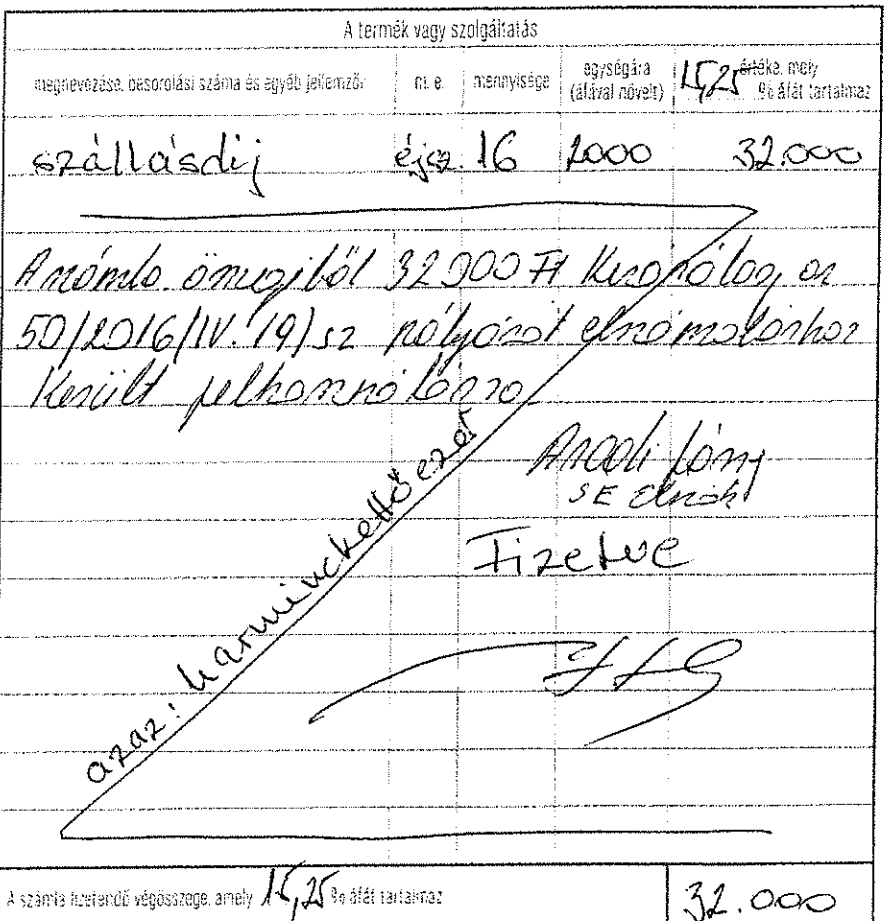 A termék vagy szolgáltatás
megnevezése, besorolási száma és egyéb jellemzői m. e. mennyisége egységára (áfával növelt) 15,25 értéke, mely % áfát tartalmaz
szállásdíj éjsz. 16 2000 32.000
A számla összegéből 32 000 Ft kizárólag az
50/2016/IV. 19/sz pályázat elszámoláshoz
Került felhasználásra
SE elnök
Fizetve
azaz: harminckettőezer
A számla fizetendő végösszege, amely 15,25 % áfát tartalmaz 32.000